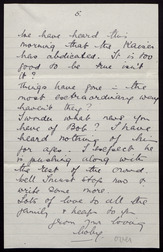 5.
We have heard this
morning that the Kaiser
has abdicated. It is too
good to be true isn't
it?
Things have gone in the
most extraordinary way
haven't they?
I wonder what news you
have of Bob? I have
heard nothing of him
for ages. I suspect he
is pushing along with
the rest of the crowd.
Well I must stop now &
write some more.
Lots of love to all the
family & heaps to you
from your loving
OVER